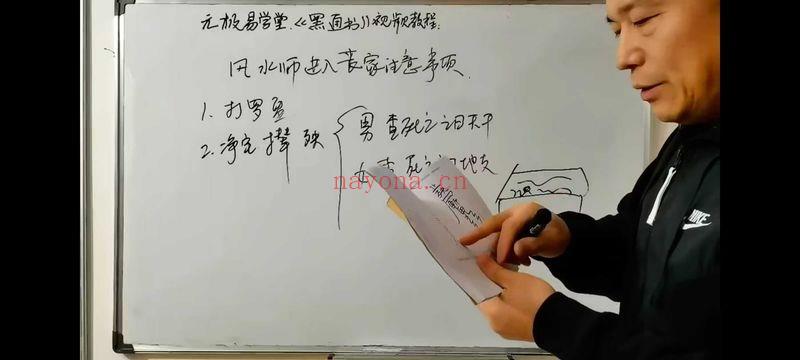 元极易学堂.《黑通书》视频教程.
风水师进入丧家注意事项.
1. 打罗盘
2. 净宅 殃
男 查死之日天干
女 查 死之日地支
nayona.cn
NIKE